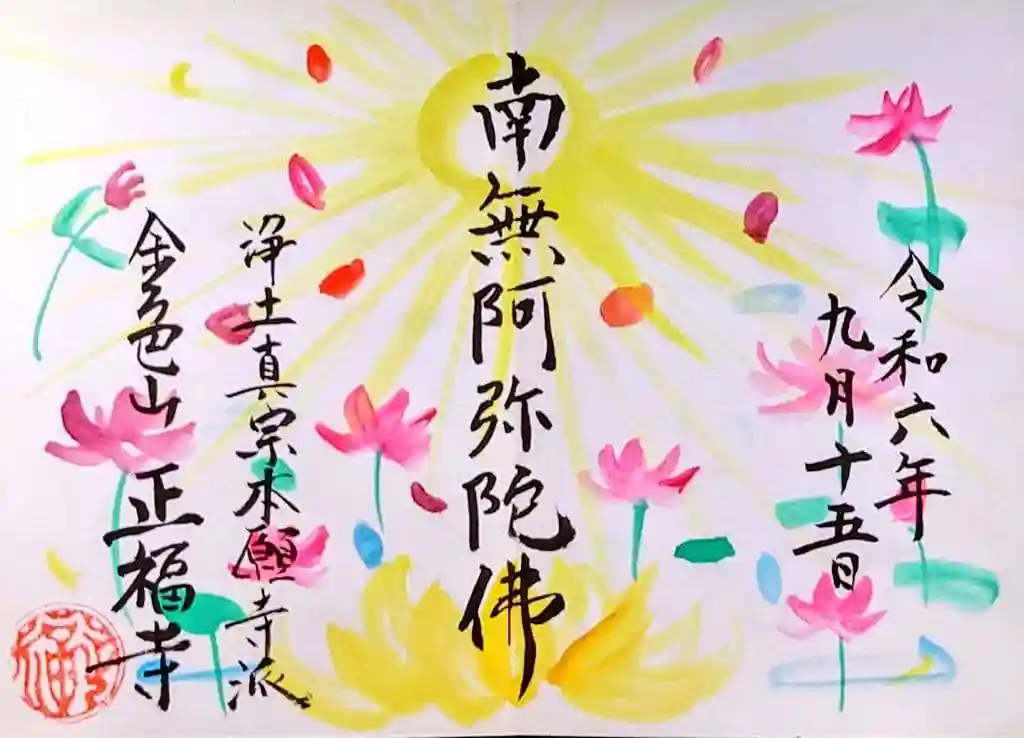 令和六年
九月十五日
南無阿弥陀佛
浄土真宗本願寺派
金色山 正福寺